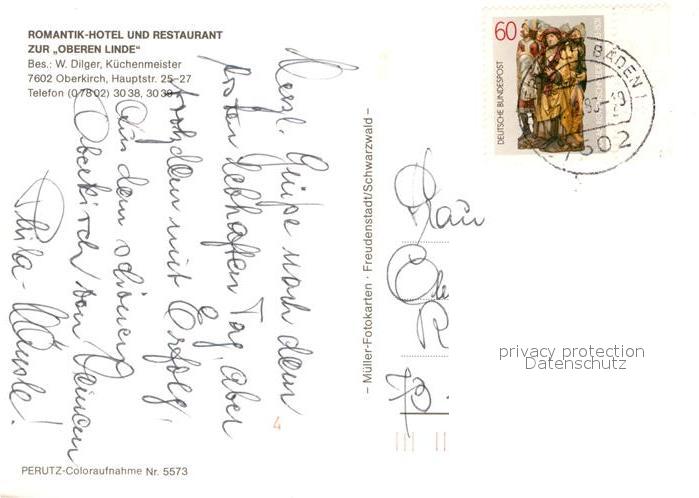 ROMANTIK-HOTEL UND RESTAURANT
ZUR „OBEREN LINDE“
Bes.: W. Dilger, Küchenmeister
7602 Oberkirch, Hauptstr. 25-27
Telefon (0 78 02) 30 38, 30 39
Herzl. Grüße nach dem
ersten lebhaften Tag, aber
trotzdem mit Erfolg,
Aus dem schönen
Oberkirch von Deinem
Phila-
– Müller-Fotokarten · Freudenstadt/Schwarzwald –
60
DEUTSCHE BUNDESPOST
BADEN
7602
Frau
privacy protection
Datenschutz
4
PERUTZ-Coloraufnahme Nr. 5573